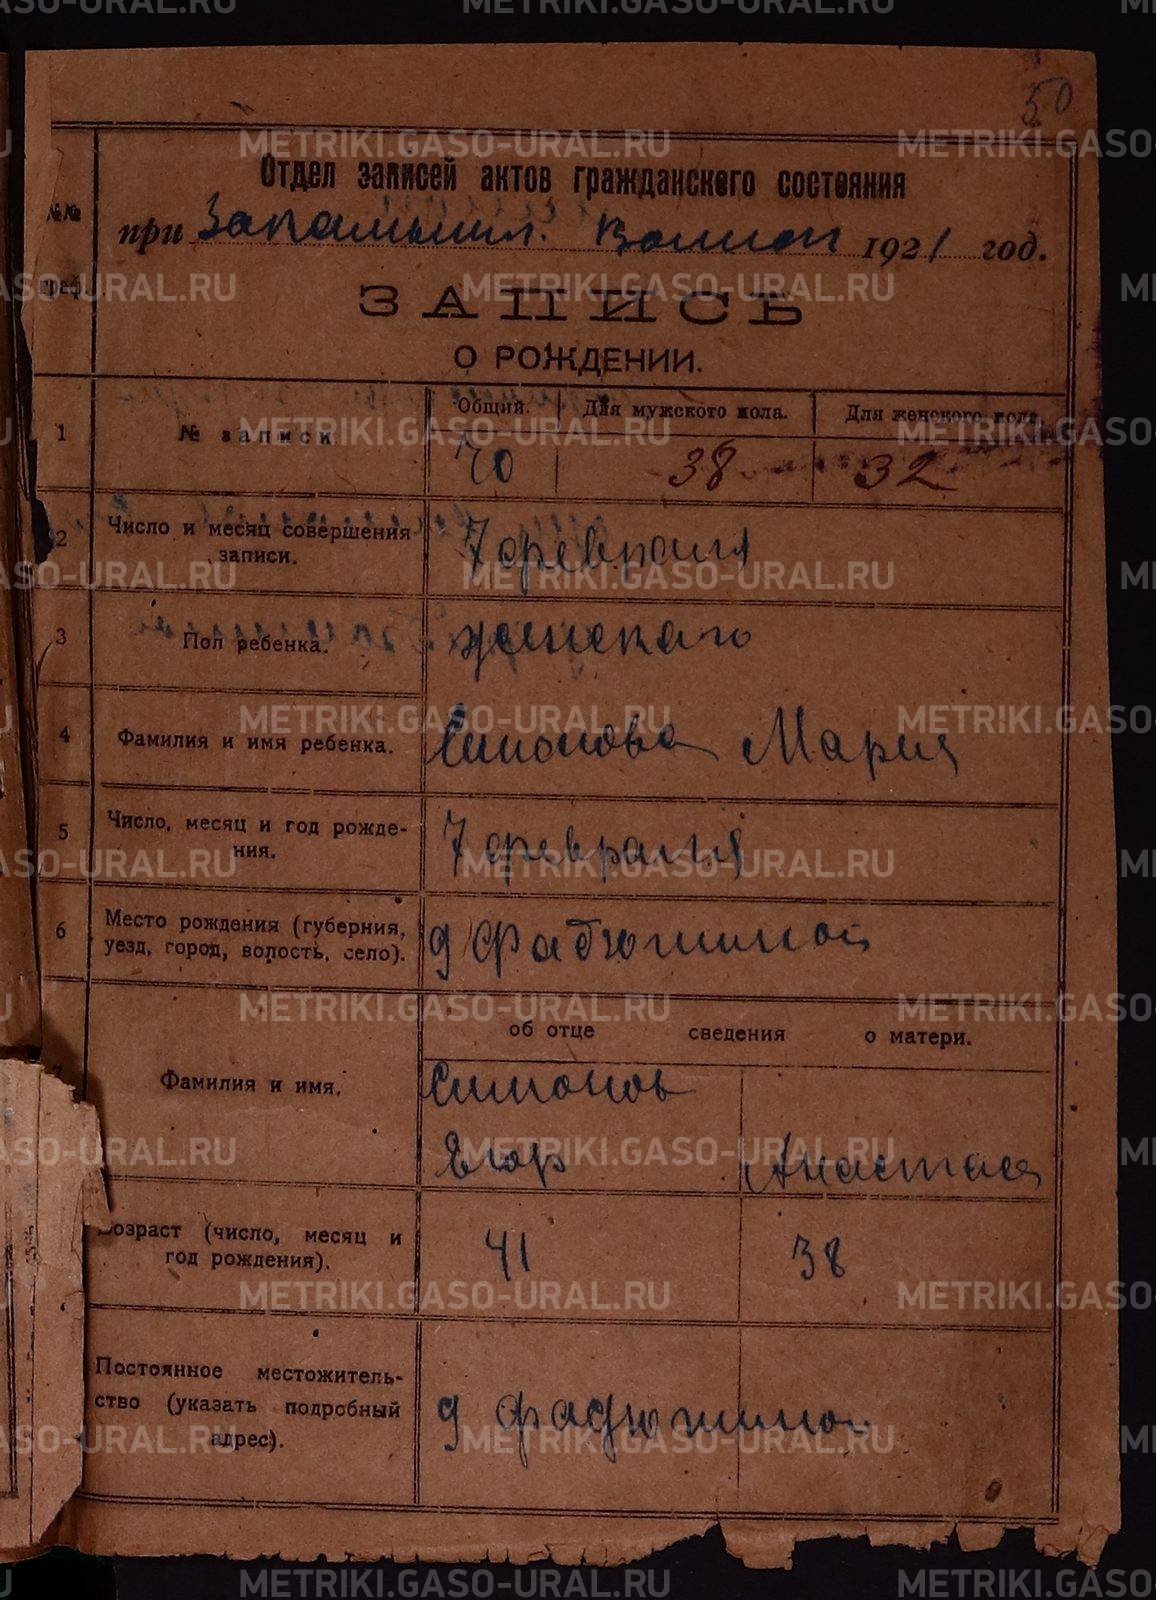 50
Отдел записей актов гражданского состояния
при Запамышл. Волисп 1921 год.
№№ граф.
ЗАПИСЬ
О РОЖДЕНИИ.
1 № записи Общий. Для мужского пола. Для женского пола.
70 38 32
2 Число и месяц совершения записи. 7 февраля
3 Пол ребенка. женскаго
4 Фамилия и имя ребенка. Симонова Мария
5 Число, месяц и год рожде-
ния. 7 февраля
6 Место рождения (губерния,
уезд, город, волость, село). д
об отце сведения о матери.
Фамилия и имя. Симонов
Егор Анастасия
Возраст (число, месяц и
год рождения). 41 38
Постоянное местожитель-
ство (указать подробный
адрес). д Фадюшиной
METRIKI.GASO-URAL.RU